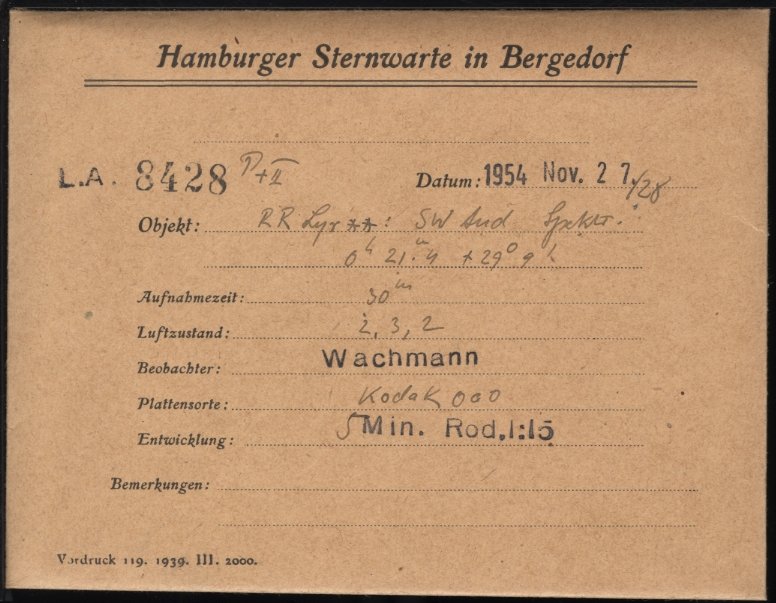 Hamburger Sternwarte in Bergedorf
L.A. 8428 P+II Datum: 1954 Nov. 27./28
Objekt: RR Lyr **: SW And Spektr.
0h 21.m4 +29° 9'
Aufnahmezeit: 30m
Luftzustand: 2, 3, 2
Beobachter: Wachmann
Plattensorte: Kodak 000
Entwicklung: 5 Min. Rod. 1:15
Bemerkungen:
Vordruck 119. 1939. III. 2000.